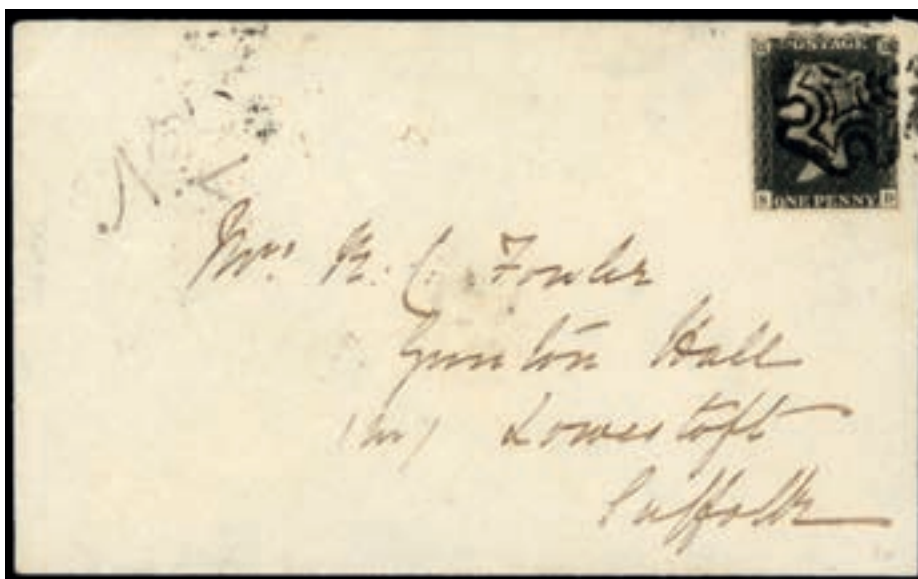 POSTAGE
S ONE PENNY D
Mrs. R. C. Fowler
Gunton Hall
Lowestoft
Suffolk